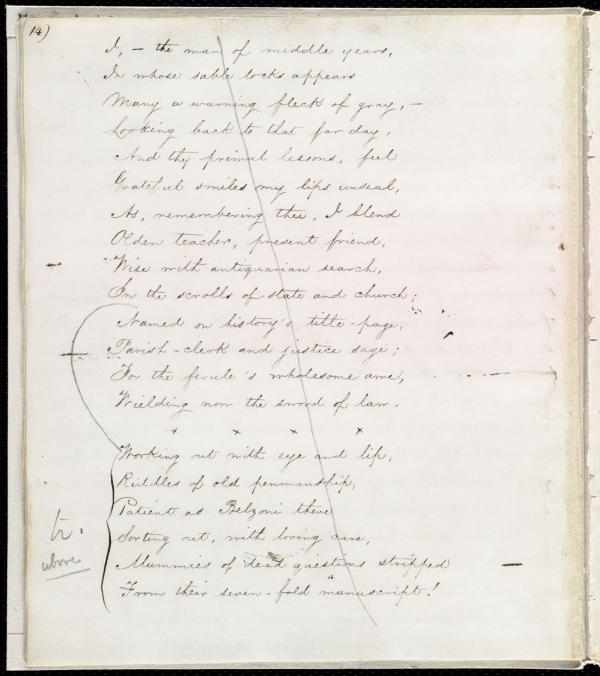 14)
I, – the man of middle years,
In whose sable locks appears
Many a warning fleck of gray, –
Looking back to that far day,
And thy primal lessons, feel
Grateful smiles my lips unseal,
As, remembering thee, I blend
Olden teacher, present friend,
Wise with antiquarian search,
In the scrolls of state and church;
Named on history's title-page,
Parish-clerk and justice sage;
For the ferule's wholesome awe,
Wielding now the sword of law.
x x x x
Working out with eye and lip,
Riddles of old penmanship,
Patient as Belzoni there
Sorting out, with loving care,
Mummies of dead questions stripped
From their seven-fold manuscript!
tr.
above